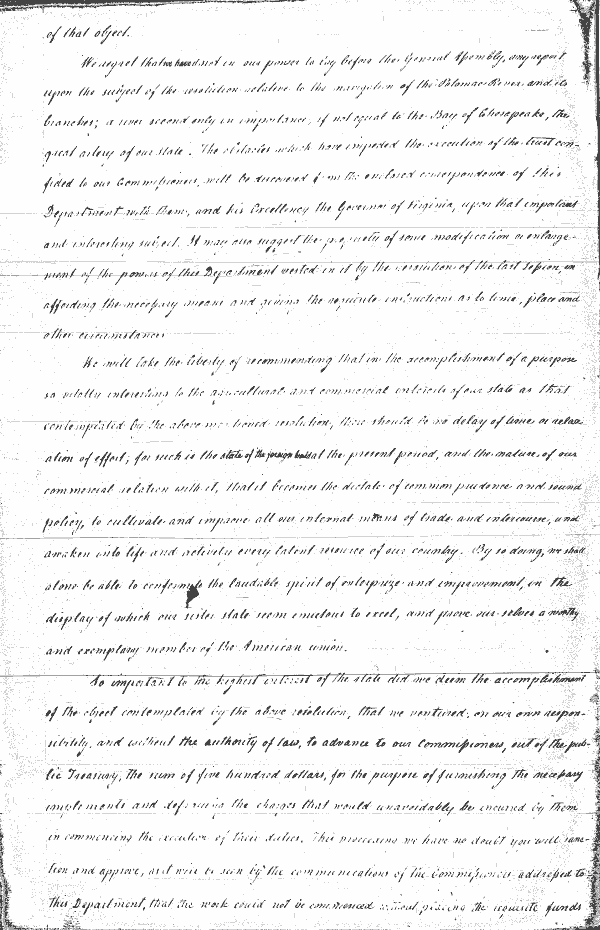 of that object.
We regret that we had not in our power to lay before the General Assembly, any report
upon the subject of the resolution relative to the navigation of the Potomac River and its
branches; a river second only in importance, if not equal to the Bay of Chesapeake, the
great artery of our state. The obstacles which have impeded the execution of the trust con-
fided to our Commissioners, will be discovered from the enclosed correspondence of this
Department with them, and his Excellency the Governor of Virginia, upon that important
and interesting subject. It may also suggest the propriety of some modification or enlarge-
ment of the power of this Department vested in it by the resolution of the last session, in
affording the necessary means and giving the requisite instructions as to time, place and
other circumstances
We will take the liberty of recommending that in the accomplishment of a purpose
so vitally interesting to the agricultural and commercial interests of our state as that
contemplated by the above mentioned resolution, there should be no delay of time or relax-
ation of effort; for such is the state of the foreign at the present period, and the nature of our
commercial relation with it, that it becomes the dictate of common prudence and sound
policy, to cultivate and improve all our internal means of trade and intercourse, and
awaken into life and activity every latent resource of our country. By so doing, we shall
alone be able to conform to the laudable spirit of enterprize and improvement, in the
display of which our sister state seem emulous to excel, and prove our-selves a worthy
and exemplary member of the American union.
So important to the highest interest of the state did we deem the accomplishment
of the object contemplated by the above resolution, that we ventured, on our own respon-
sibility, and without the authority of law, to advance to our Commissioners, out of the pub-
lic Treasury, the sum of five hundred dollars, for the purpose of furnishing the necessary
implements and defraying the charges that would unavoidably be incurred by them
in commencing the execution of their duties. This proceeding we have no doubt you will sanc-
tion and approve, as it will be seen by the communications of the Commissioners addressed to
this Department, that the work could not be commenced without placing the requisite funds